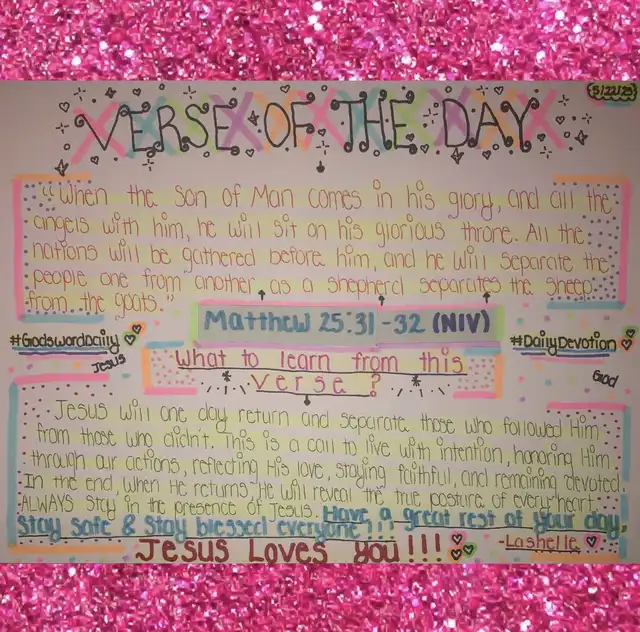 5/22/25
VERSE OF THE DAY
"When the Son of Man comes in his glory, and all the
angels with him, he will sit on his glorious throne. All the
nations will be gathered before him, and he will separate the
people one from another as a shepherd separates the sheep
from the goats."
Matthew 25:31-32 (NIV)
#GodswordDaily
#DailyDevotion
Jesus
God
What to learn from this
verse?
Jesus will one day return and separate those who followed Him
from those who didn't. This is a call to live with intention, honoring Him
through our actions, reflecting His love, staying faithful, and remaining devoted.
In the end, when He returns, He will reveal the true posture of every heart.
ALWAYS stay in the presence of Jesus. Have a great rest of your day,
Stay safe & Stay blessed everyone!!!
Jesus Loves you!!!
-Lashelle